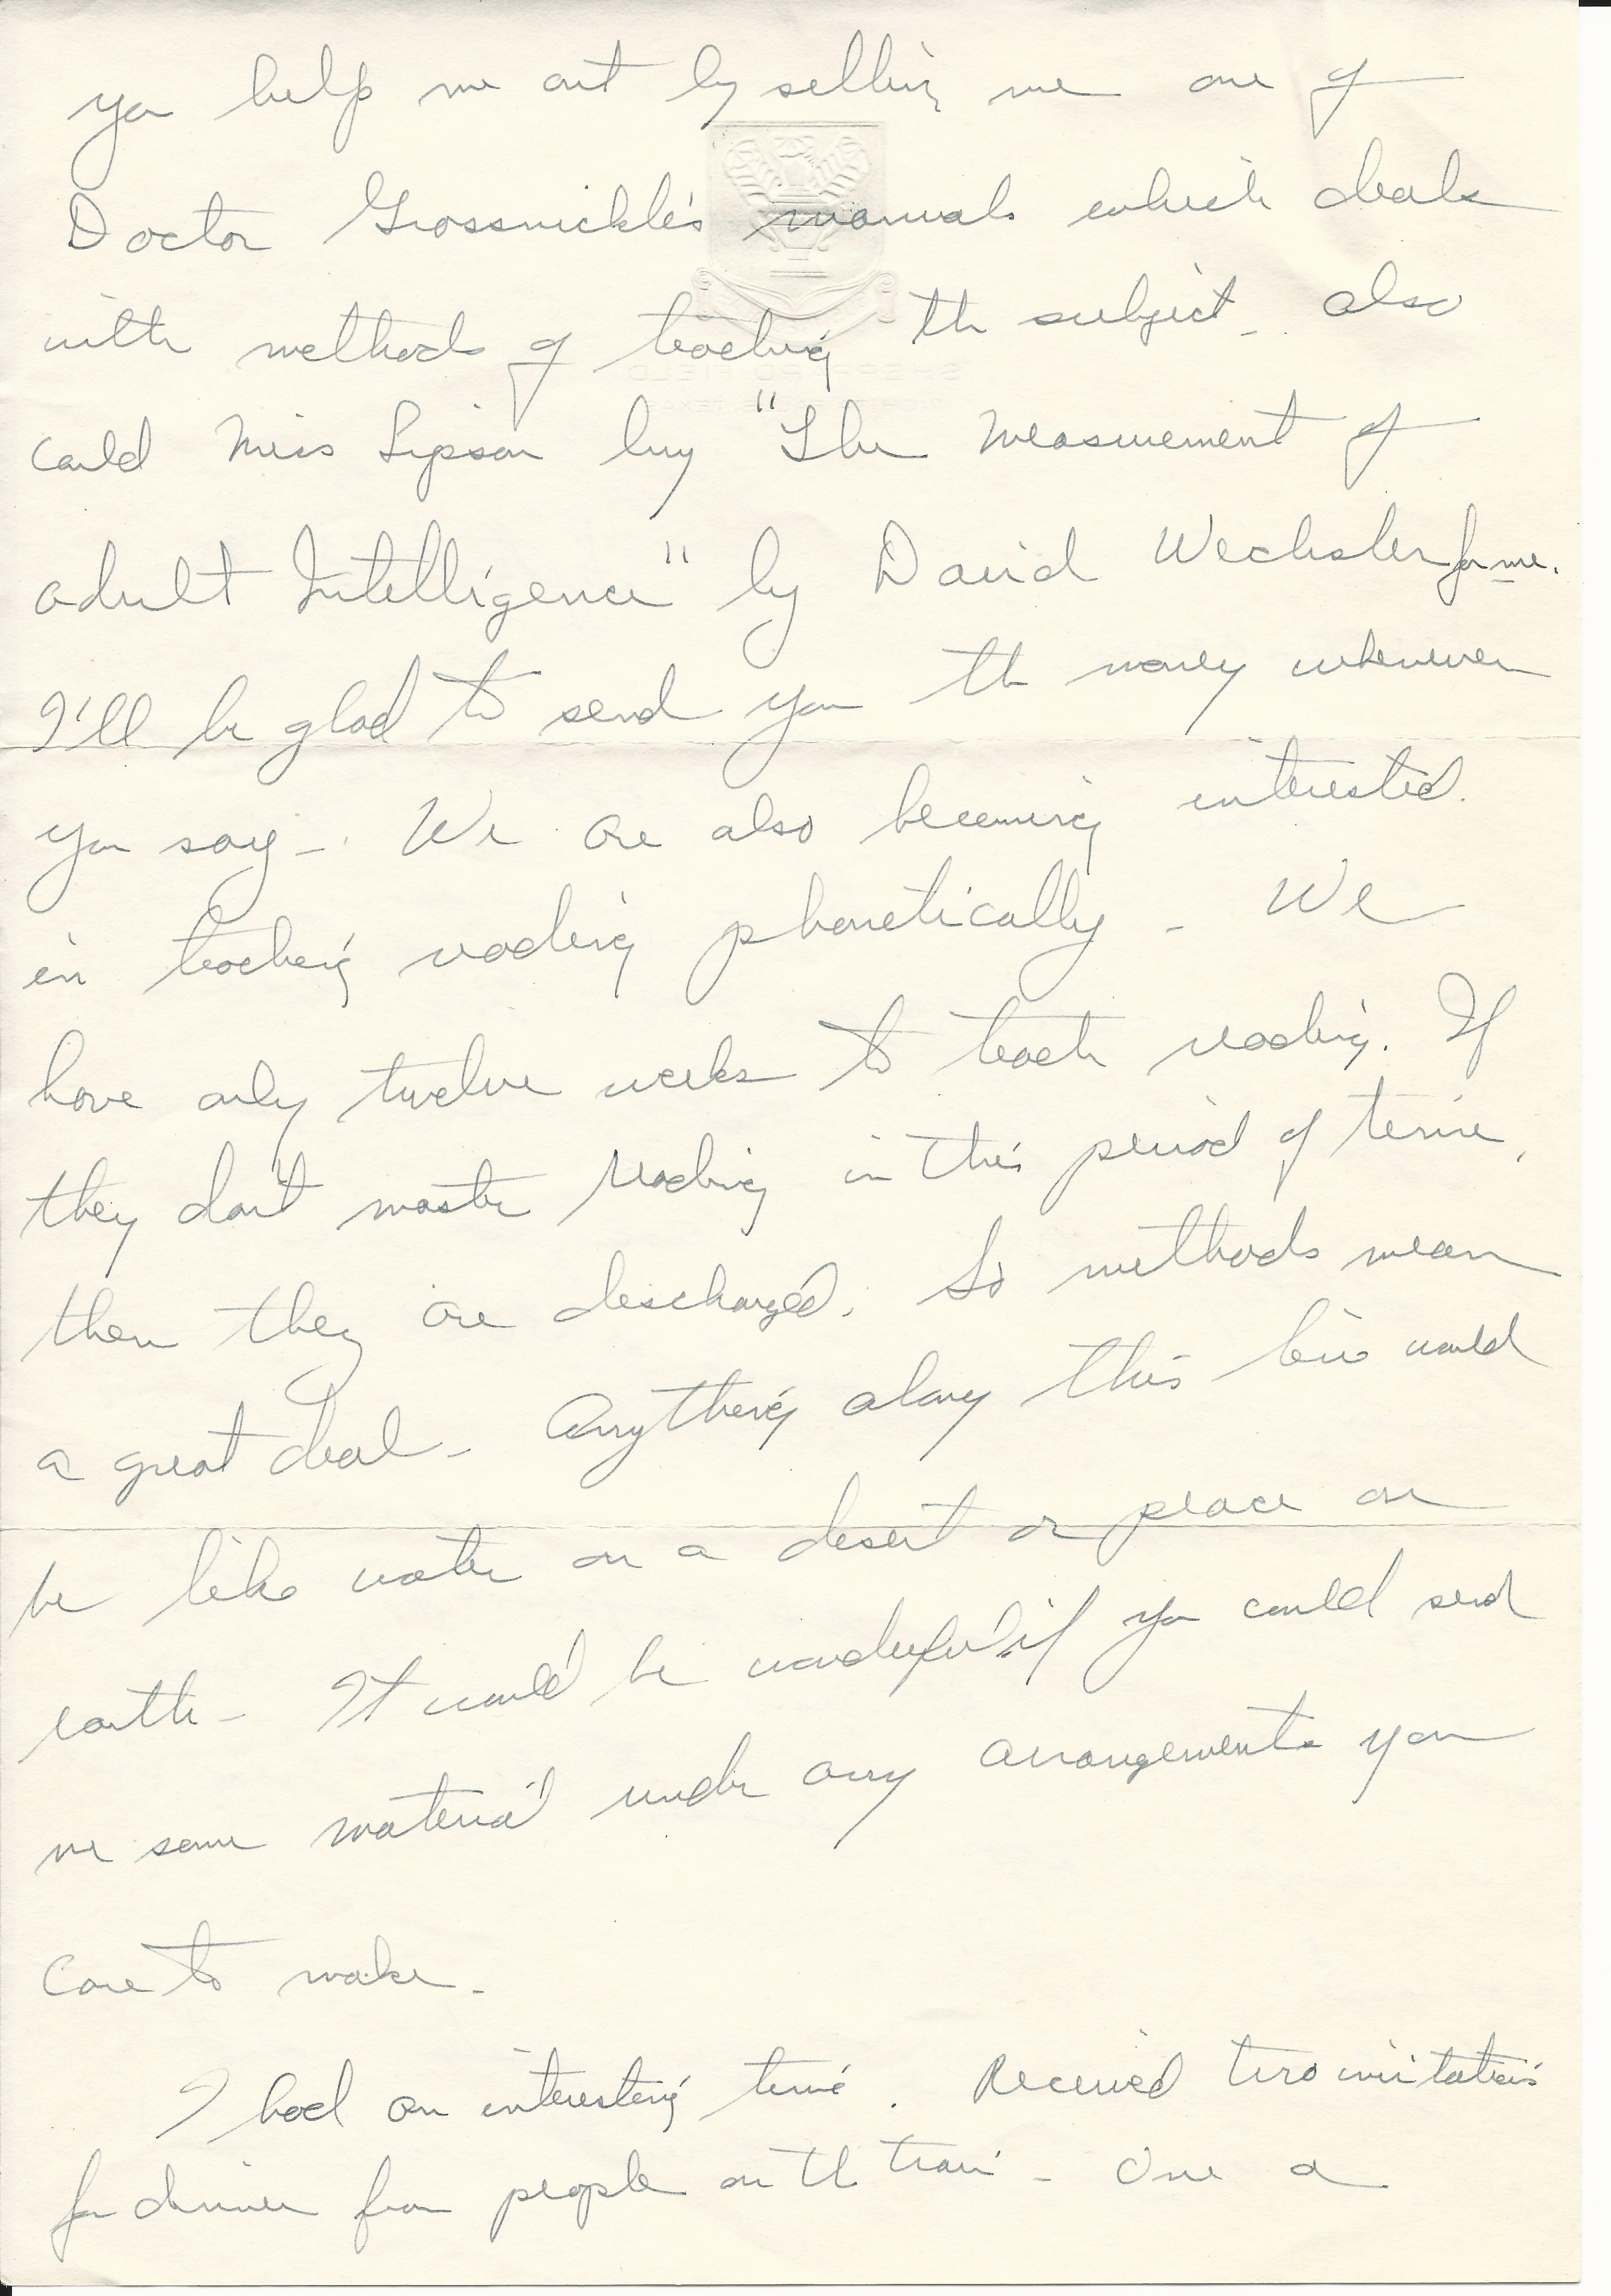 you help me out by selling me one of
Doctor Grossnickle's manuals which deals
with methods of teaching the subject - also
could Miss Lipson buy "The Measurement of
adult Intelligence" by David Wechsler for me.
I'll be glad to send you the money whenever
you say -. We are also becoming interested.
in teaching reading phonetically - We
have only twelve weeks to teach reading. If
they don't master reading in this period of time,
then they are discharged. So methods mean
a great deal - Anything along this line would
be like water on a desert or peace on
earth - It would be wonderful if you could send
me some material under any arrangements you
care to make -
I had an interesting time. Received two invitations
for dinner from people on the train - One a
SHEPPARD FIELD